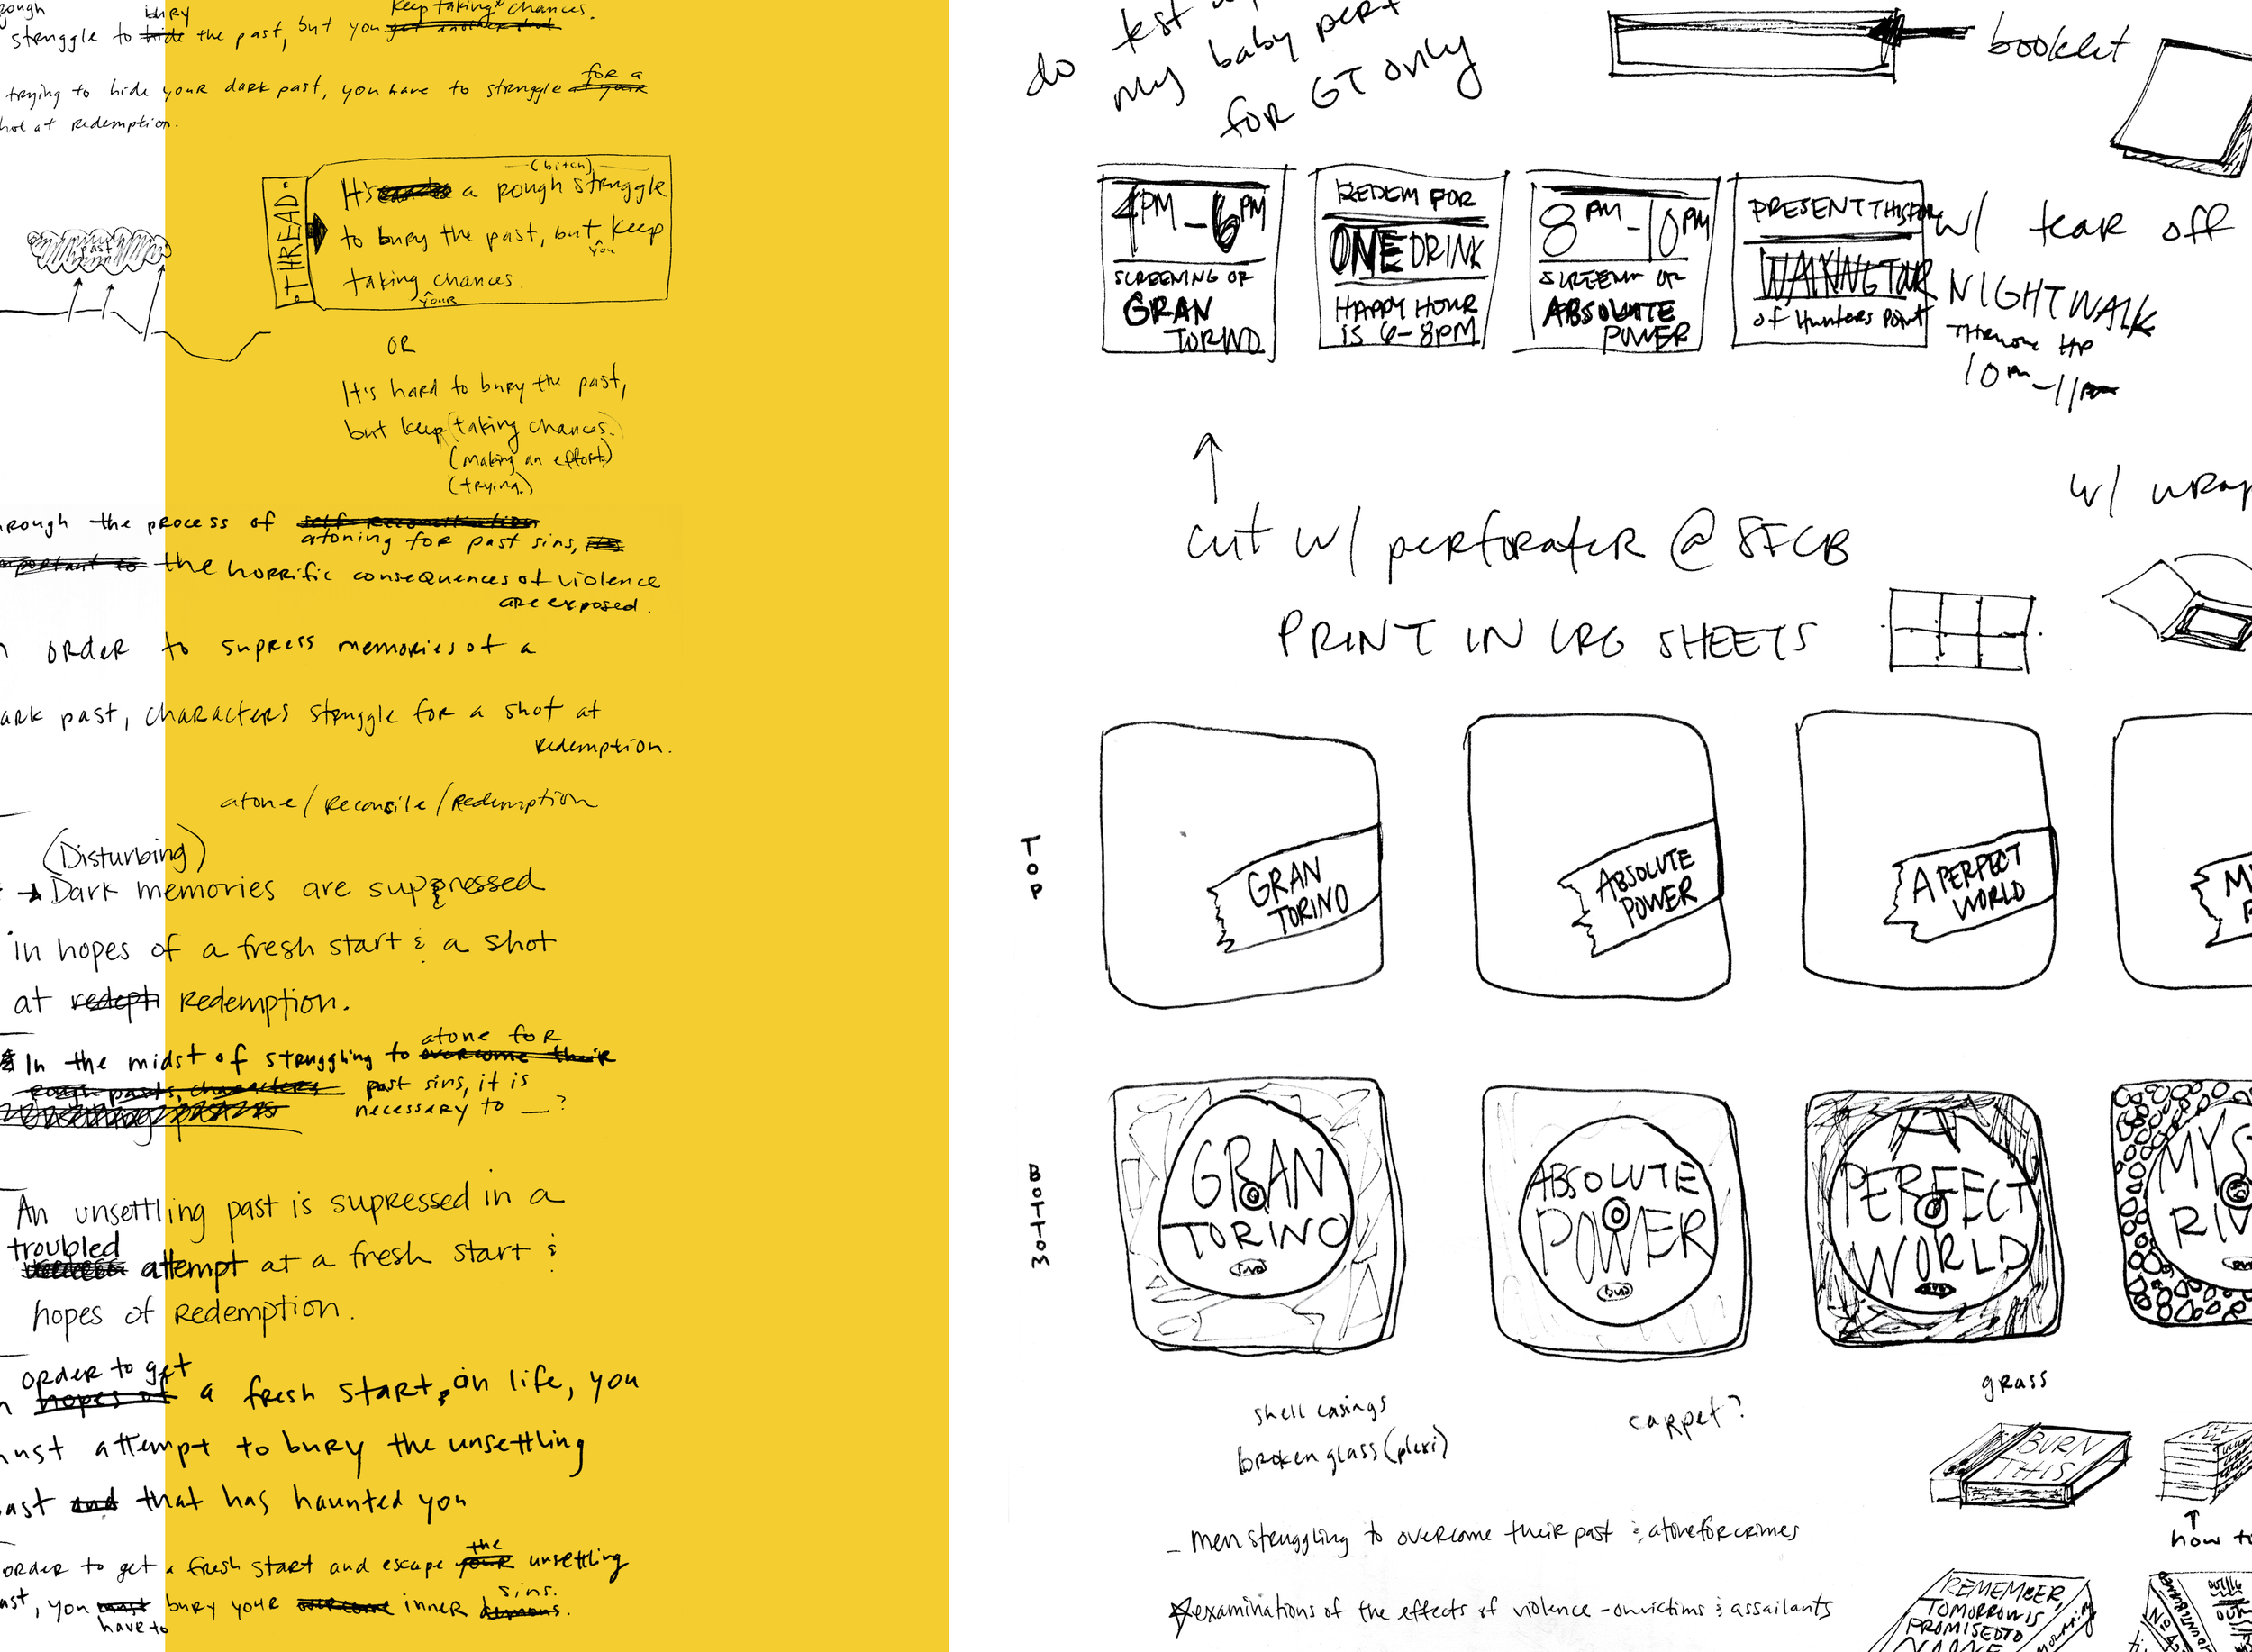 rough bury keep taking chances.
struggle to hide the past, but you get another shot
trying to hide your dark past, you have to struggle for a
shot at redemption.
(bitch)
It's a rough struggle
to bury the past, but you keep
taking your chances.
THREAD
past
OR
It's hard to bury the past,
but keep (taking chances.)
(making an effort)
(trying.)
hrough the process of self reconciliation
atoning for past sins,
mportant to the horrific consequences of violence
are exposed.
n order to supress memories of a
ark past, characters struggle for a shot at
redemption.
atone/reconcile/redemption
(Disturbing)
Dark memories are suppressed
in hopes of a fresh start & a shot
at redeptn Redemption.
atone for
In the midst of struggling to overcome their
rough pasts, characters past sins, it is
necessary to _?
An unsettling past is supressed in a
troubled
attempt at a fresh start &
hopes of Redemption.
order to get
n hopes of a fresh start on life, you
must attempt to bury the unsettling
past and that has haunted you
order to get a fresh start and escape your the unsettling
ast, you must have to bury your overcome inner demons sins.
do test
my baby perf
for GT only
booklet
4PM-6PM
SCREENING OF
GRAN
TORINO
REDEM FOR
ONE DRINK
HAPPY HOUR
IS 6-8PM
8PM-10PM
SCREENING OF
ABSOLUTE
POWER
PRESENT THIS FOR
WALKING TOUR
of Hunters Point
w/ tear off
NIGHTWALK
10PM-11PM
cut w/ perforater @ SFCB
w/ wrap
PRINT IN LRG SHEETS
TOP
GRAN
TORINO
ABSOLUTE
POWER
A PERFECT
WORLD
BOTTOM
GRAN
TORINO
DVD
ABSOLUTE
POWER
DVD
A
PERFECT
WORLD
DVD
MYS
RIV
shell casings
broken glass (plexi)
carpet?
grass
BURN
THIS
how to
- men struggling to overcome their past & atone for crimes
examinations of the effects of violence - on victims & assailants
REMEMBER,
TOMORROW IS
PROMISED TO